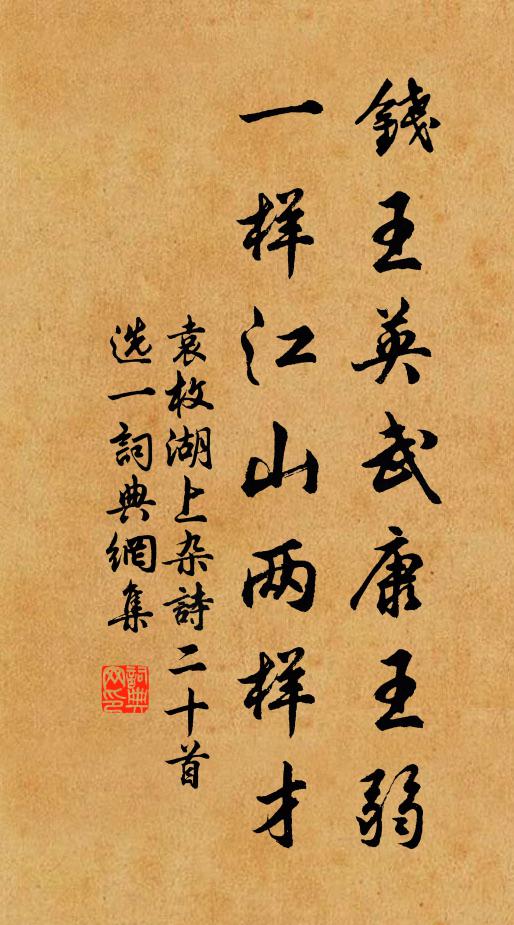 錢王英武康王弱
一样江山两样才
袁枚湖上杂詩二十首
选一詞典網集
詞典
网印